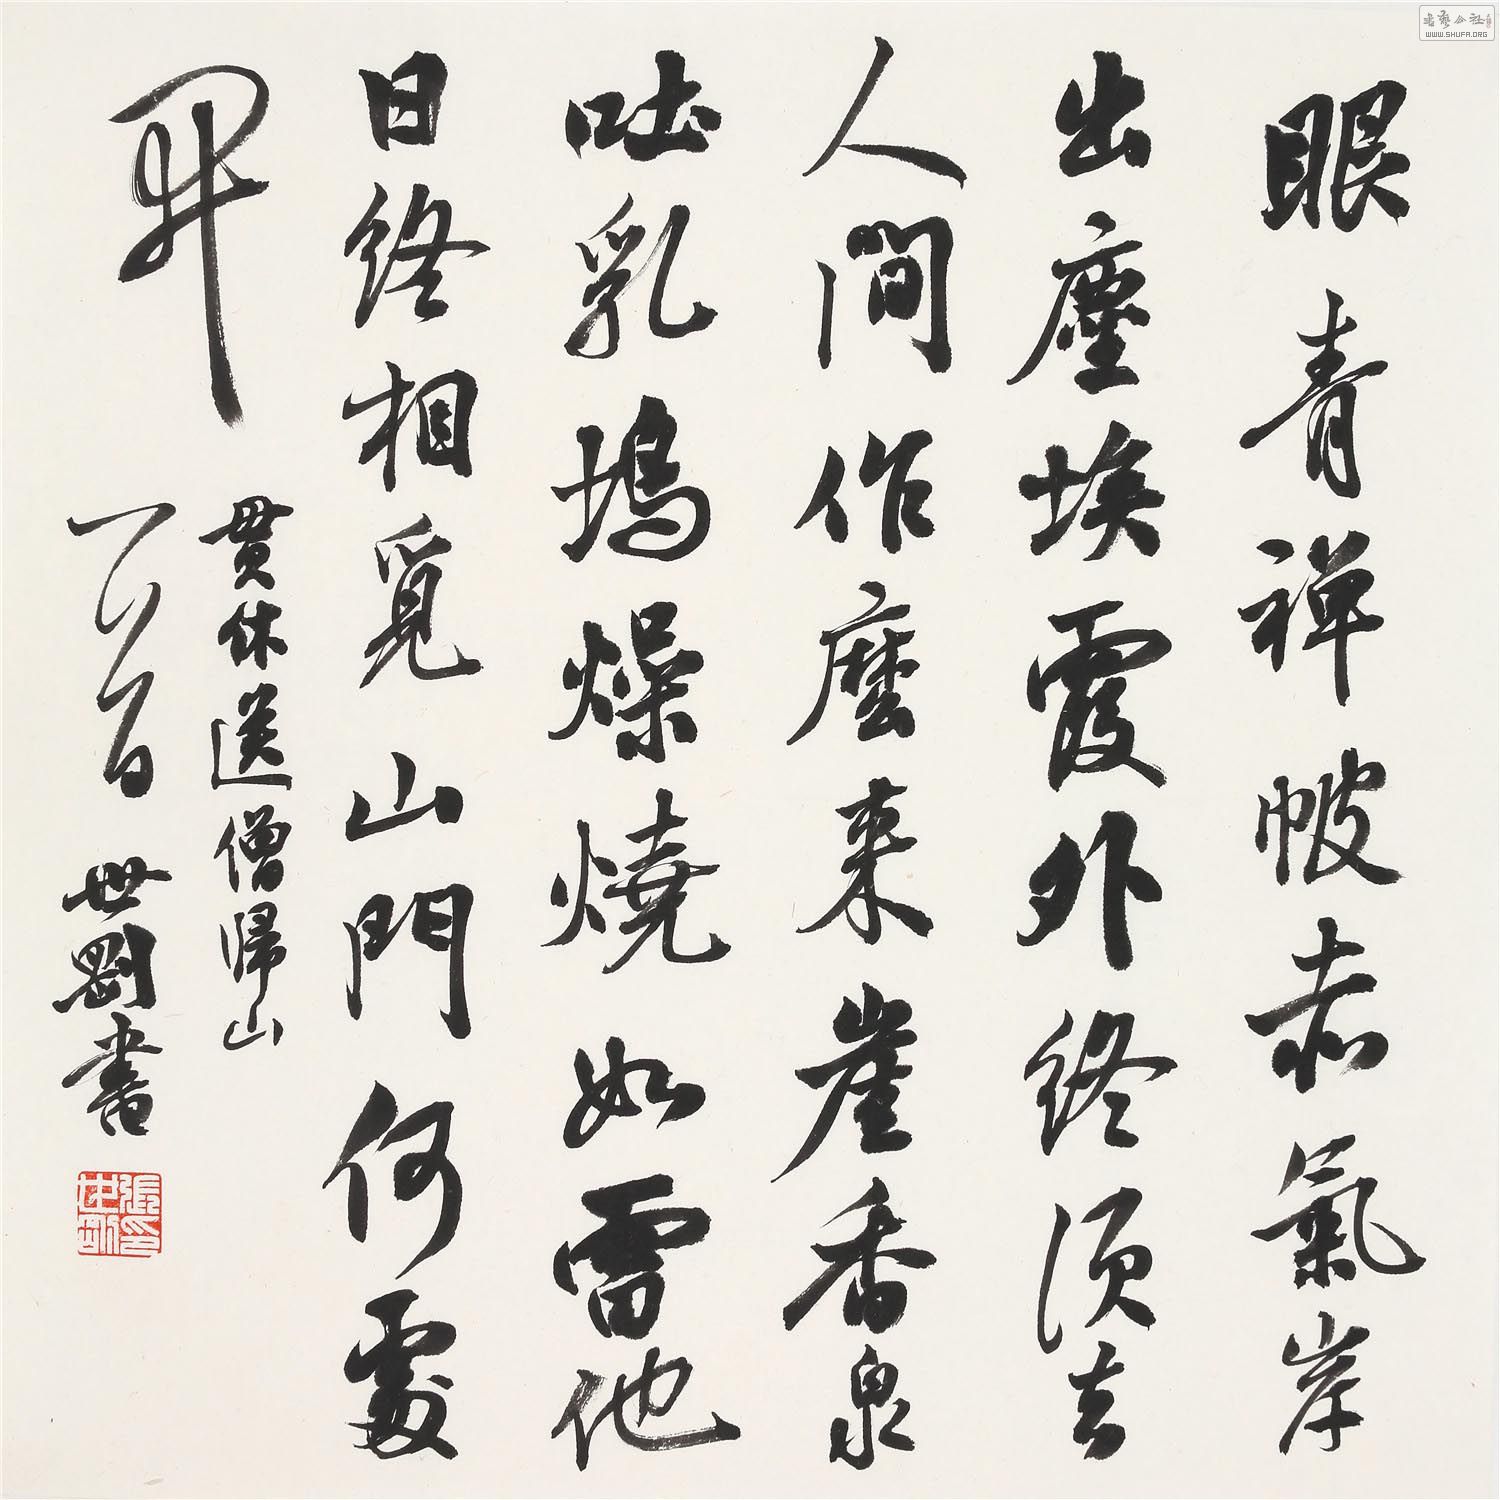 眼青禪帔赤氣岸
出塵埃霞外終須去
人間作麼来崖香泉
吐乳塢燥燒如雷他
日終相覓山門何處
開
貫休送僧歸山
世剛書
張印世剛
書藝公社
WWW.SHUFA.ORG